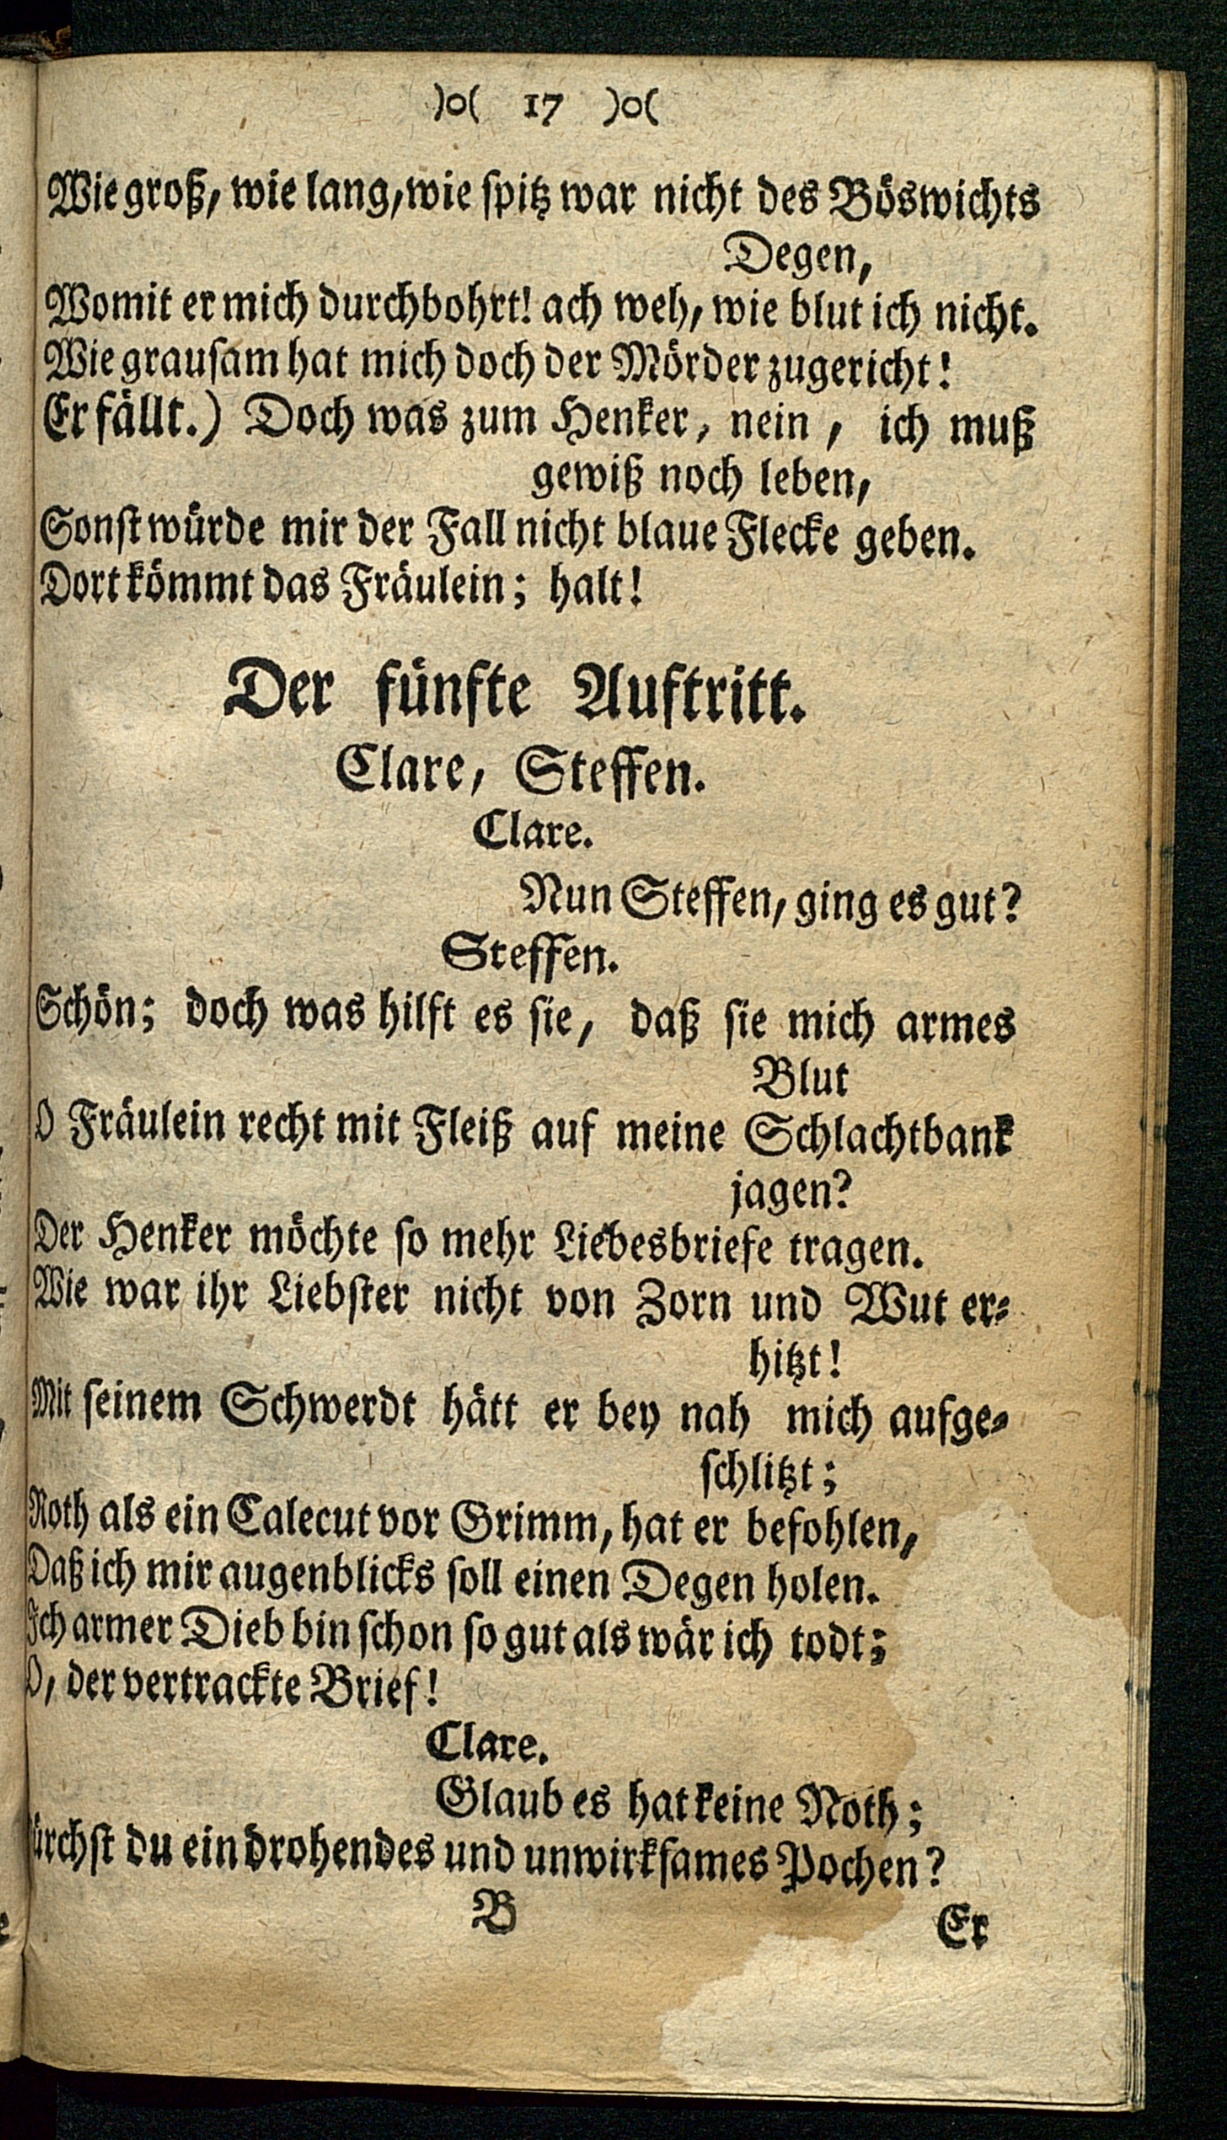 )o( 17 )o(
Wie groß, wie lang, wie spitz war nicht des Böswichts
Degen,
Womit er mich durchbohrt! ach weh, wie blut ich nicht.
Wie grausam hat mich doch der Mörder zugericht!
Er fällt.) Doch was zum Henker, nein, ich muß
gewiß noch leben,
Sonst würde mir der Fall nicht blaue Flecke geben.
Dort kömmt das Fräulein; halt!
Der fünfte Auftritt.
Clare, Steffen.
Clare.
Nun Steffen, ging es gut?
Steffen.
Schön; doch was hilft es sie, daß sie mich armes
Blut
O Fräulein recht mit Fleiß auf meine Schlachtbank
jagen?
Der Henker möchte so mehr Liebesbriefe tragen.
Wie war ihr Liebster nicht von Zorn und Wut er-
hitzt!
Mit seinem Schwerdt hätt er bey nah mich aufge-
schlitzt;
Roth als ein Calecut vor Grimm, hat er befohlen,
Daß ich mir augenblicks soll einen Degen holen.
Ich armer Dieb bin schon so gut als wär ich todt;
O, der vertrackte Brief!
Clare.
Glaub es hat keine Noth;
ürchst du ein drohendes und unwirksames Pochen?
B
Er